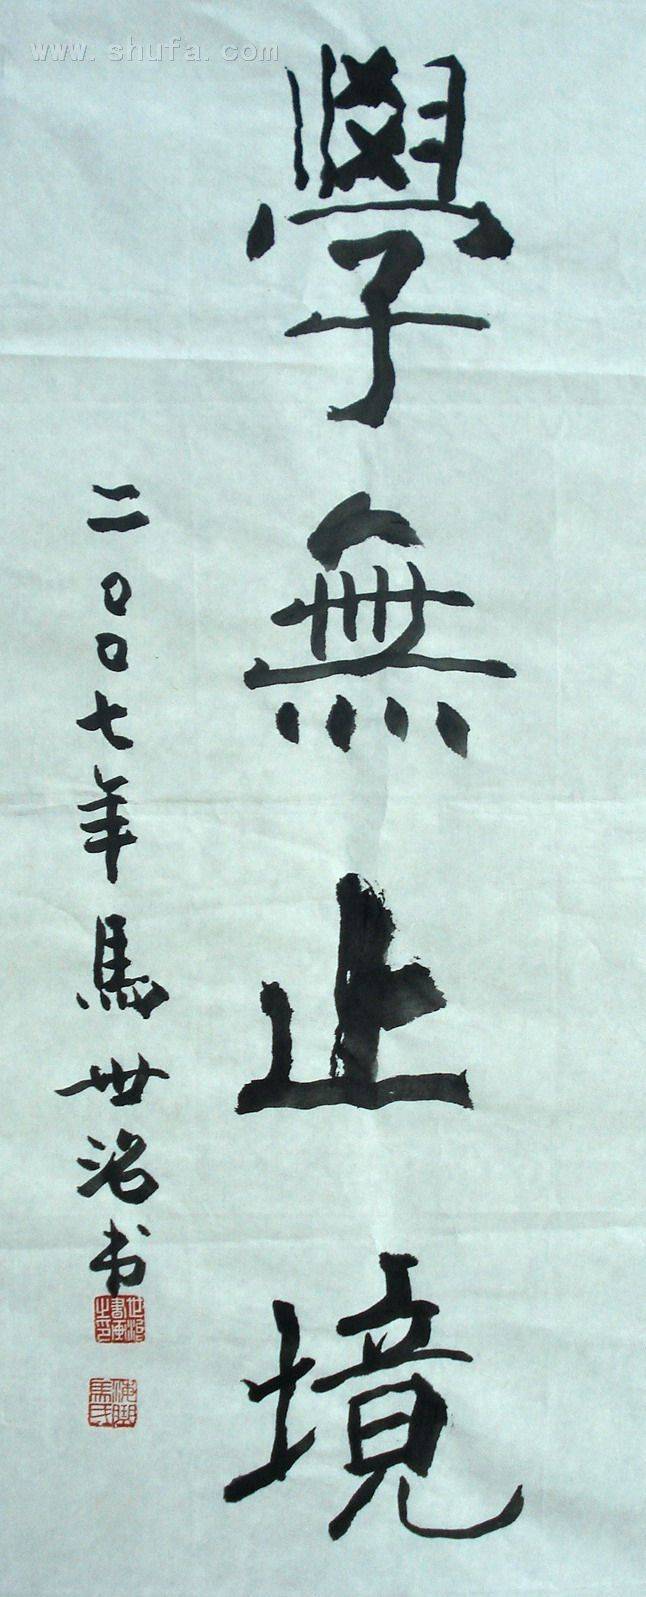 www.shufa.com
學無止境
二〇〇七年馬世洺书